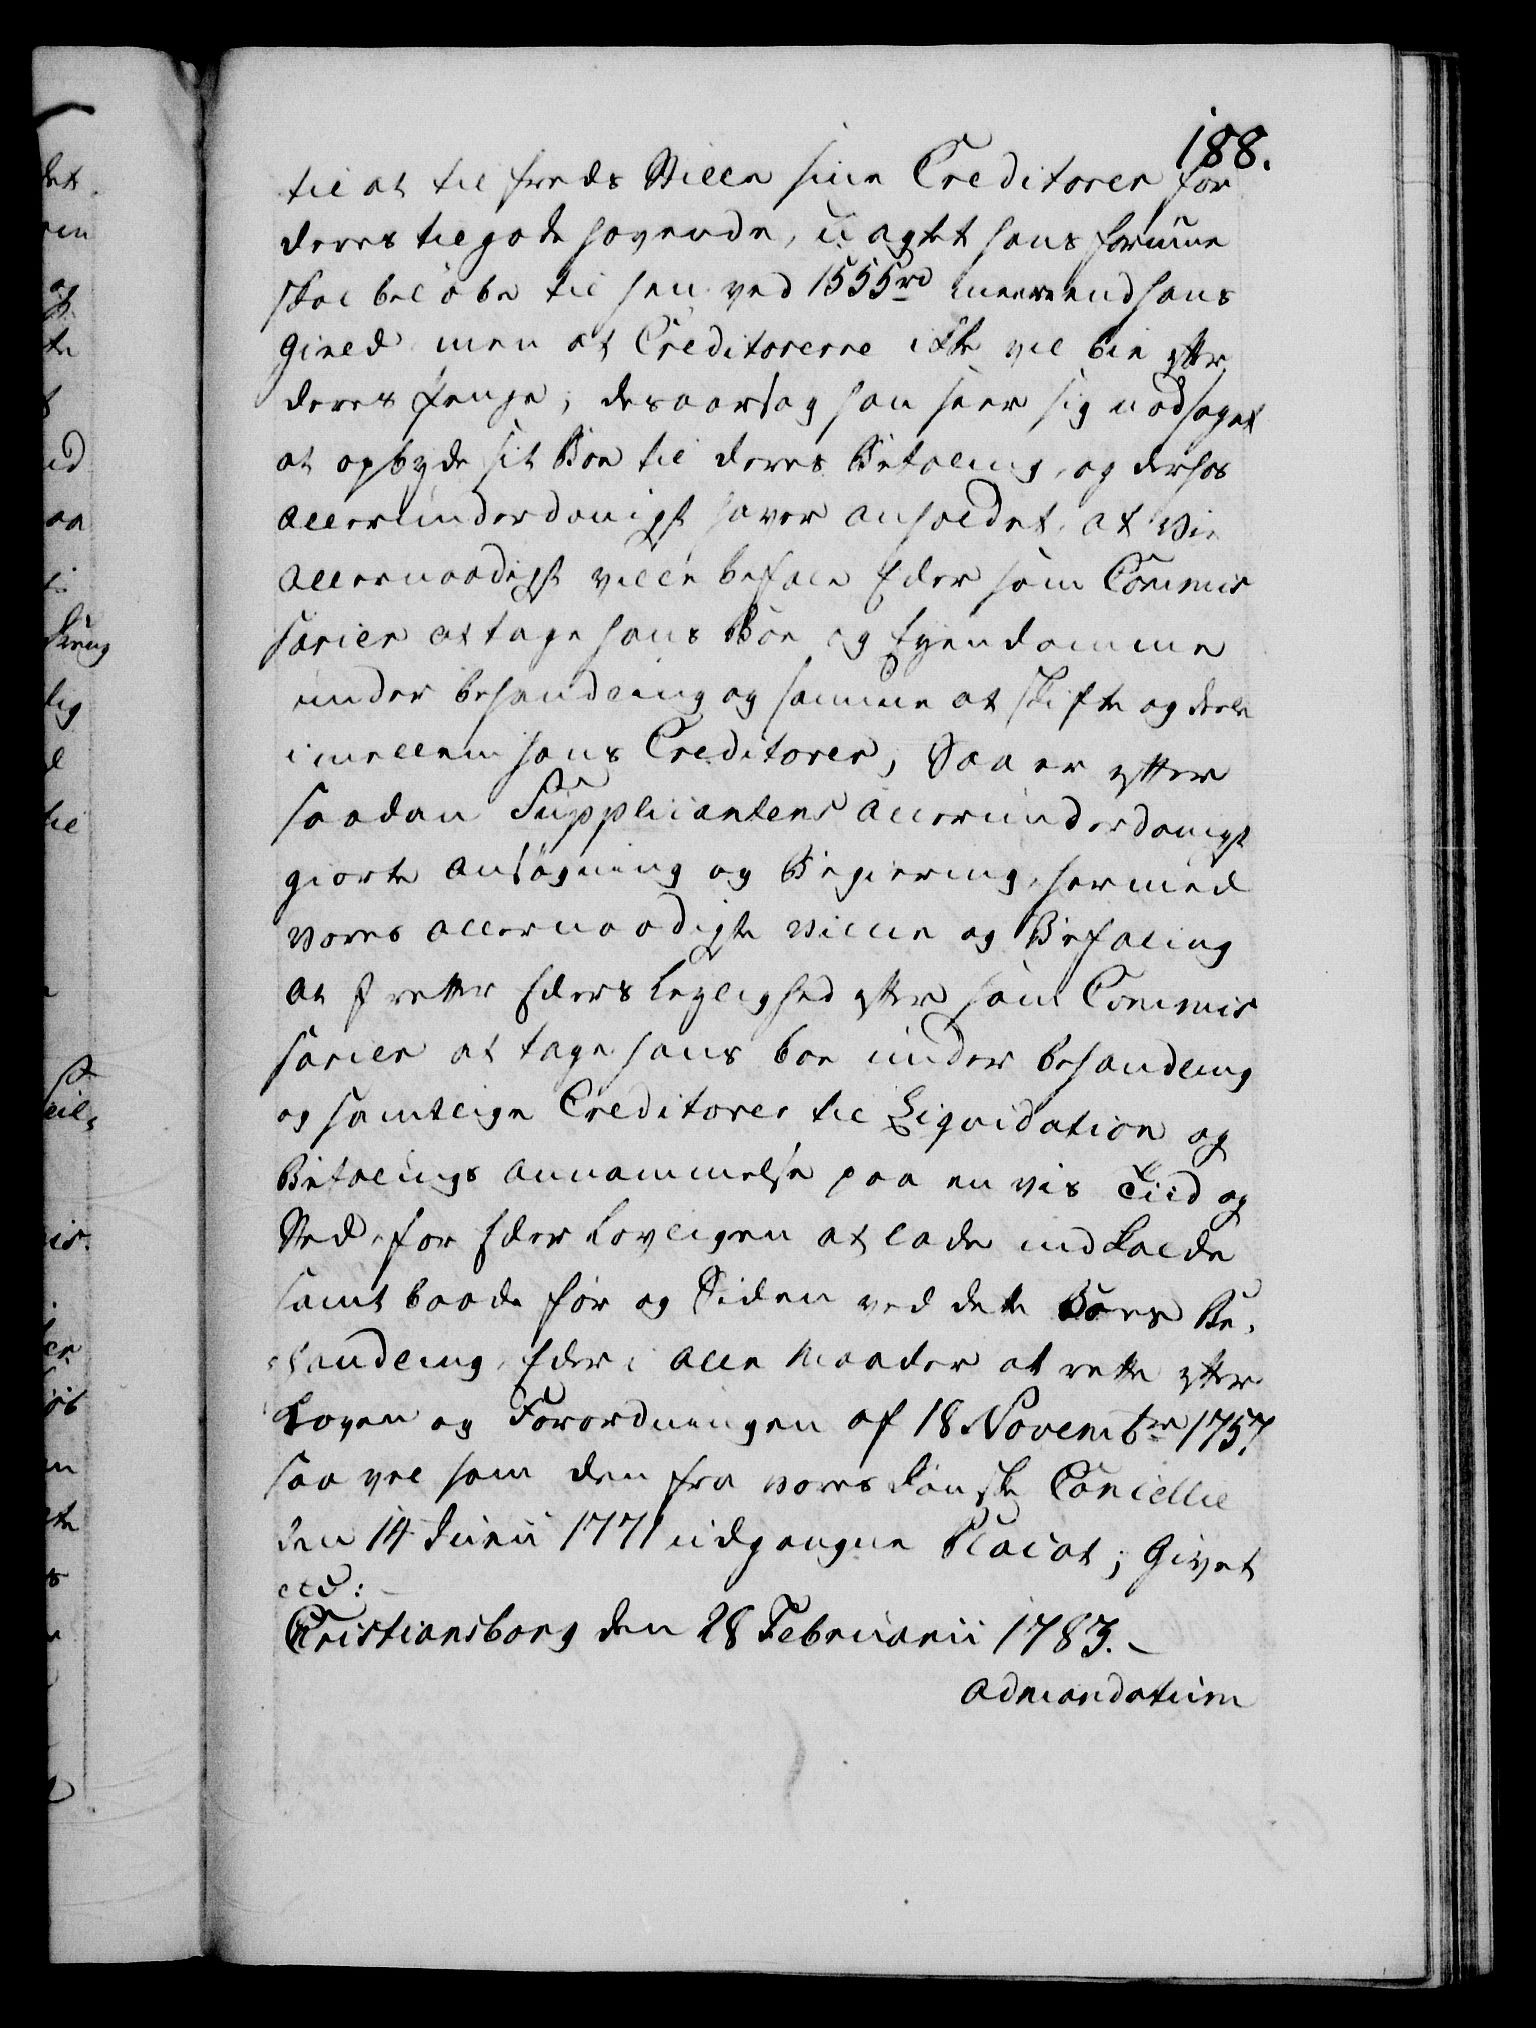 188.
til at til freds Stille sine Creditorer for
deres tilgode havende, u agtet hans formue
skal beløbe til hen ved 1555 rd meere end hans
Gield men at Creditorerne ikke vil bie efter
deres penge; desaarsag han seer sig nødsaget
at opbyde sit Boe til deres Betaling, og derhos
allerunderdanigst haver anholdet, at Vie
allernaadigst ville befale Eder som Commis
sarier at tage hans Boe og Eyendomme
under behandling og samme at skifte og deele
imellem hans Creditorer; Saa er efter
saadan Supplicantens allerunderdanigst
giorte ansøgning og Begiering, hermed
vores allernaadigste Villie og Befaling
at I retter Eders Leylighed efter som Commis
sarier at tage hans boe under behandling
og samtlige Creditorer til Liqvidation og
Betalings annammelse paa en vis Tiid og
Sted, for Eder Lovligen at lade indkalde
samt baade før og Siden ved dette Boes Be-
handling, Eder i alle Maader at rette efter
Loven og Forordningen af 18 Novembr 1757
saa vel som den fra vores danske Cancellie
den 14 Junii 1771 udgangne Placat; Givet
etc:
Cristiansborg den 28 Februarii 1783.
admandatum